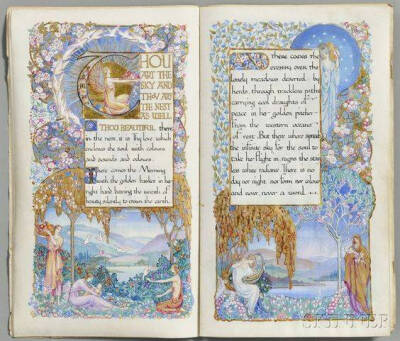 THOU
ART THE
SKY AND
THOU ART
THE NEST
AS WELL.
O THOU BEAUTIFUL, there
in the nest it is thy love which
encloses the soul with colours
and sounds and odours.
There comes the Morning
with the golden basket in her
right hand bearing the wreath of
beauty, silently to crown the earth.
And there comes the
evening over the
lonely meadows deserted by
herds, through trackless paths
carrying cool draughts of
peace in her golden pitcher
from the western ocean
of rest. But there where spreads
the infinite sky for the soul to
take her flight in, reigns the stain
less white radiance. There is no
day nor night, nor form nor colour
and never, never a word.
SKINNER